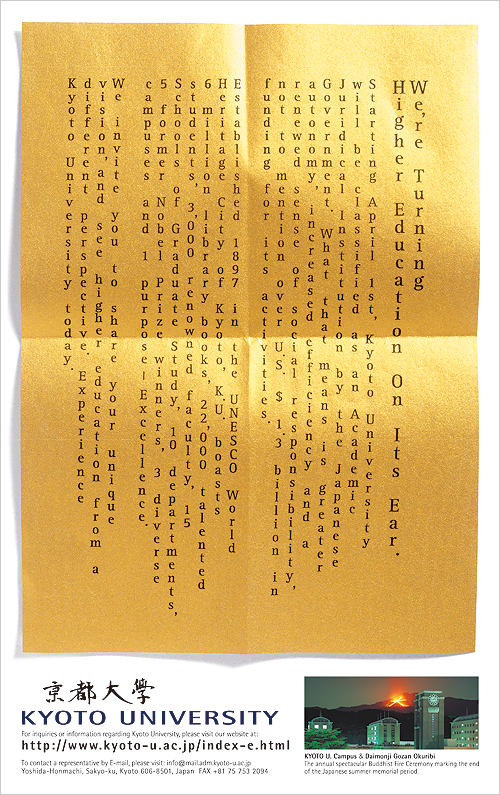 We're Turning
Higher Education On Its Ear.
Starting April 1st, Kyoto University
will be classified as an Academic
Juridical Institution by the Japanese
Government. What that means is greater
autonomy, increased efficiency and a
renewed sense of social responsibility,
not to mention over U.S. $ 1.3 billion in
funding for its activities.
Established 1897 in the UNESCO World
Heritage City of Kyoto, K.U. boasts
6 million library books, 22,000 talented
students, 3,000 renowned faculty, 15
Schools of Graduate Study, 10 departments,
5 former Nobel Prize winners, 3 diverse
campuses and 1 purpose–Excellence.
We invite you to share your unique
vision, and see higher education from a
different perspective. Experience
Kyoto University today.
京都大學
KYOTO UNIVERSITY
For inquiries or information regarding Kyoto University, please visit our website at:
http://www.kyoto-u.ac.jp/index-e.html
To contact a representative by E-mail, please visit: info@mail.adm.kyoto-u.ac.jp
Yoshida-Honmachi, Sakyo-ku, Kyoto 606-8501, Japan FAX +81 75 753 2094
KYOTO U. Campus & Daimonji Gozan Okuribi
The annual spectacular Buddhist Fire Ceremony marking the end
of the Japanese summer memorial period.